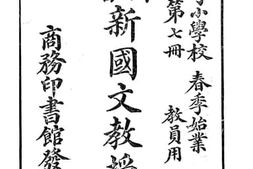 小學校 春季始業 教員用
第七冊
新國文教
商務印書館發